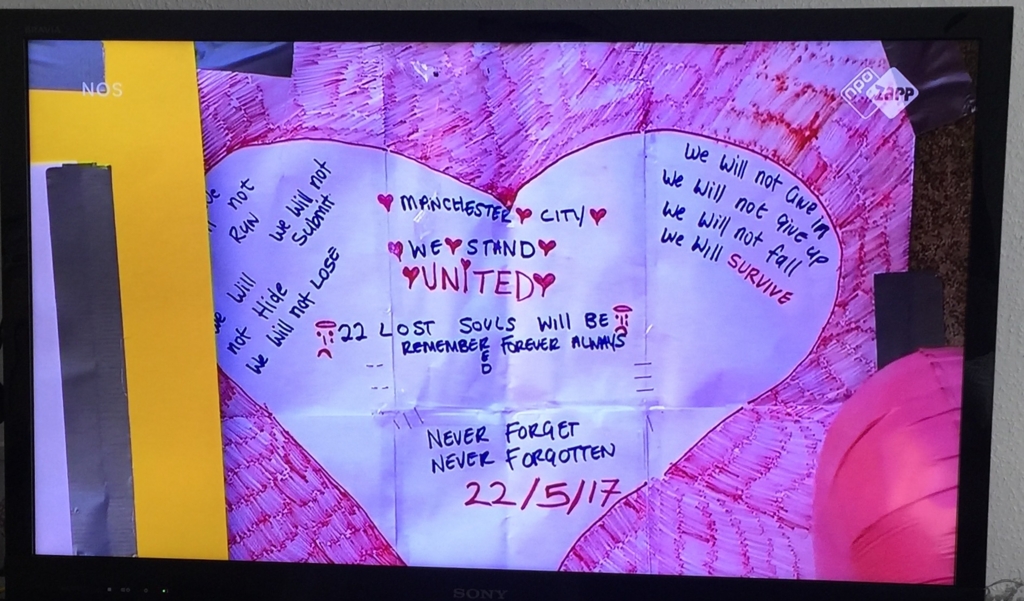 NOS
npo
zapp
not
RUN
We Will not
Submit
We Will
not Hide
We Will not LOSE
MANCHESTER CITY
WE STAND
UNITED
22 LOST SOULS WILL BE
REMEMBERED FOREVER ALWAYS
NEVER FORGET
NEVER FORGOTTEN
22/5/17
We Will not Give In
We Will not give up
We Will not fall
We Will SURVIVE
SONY